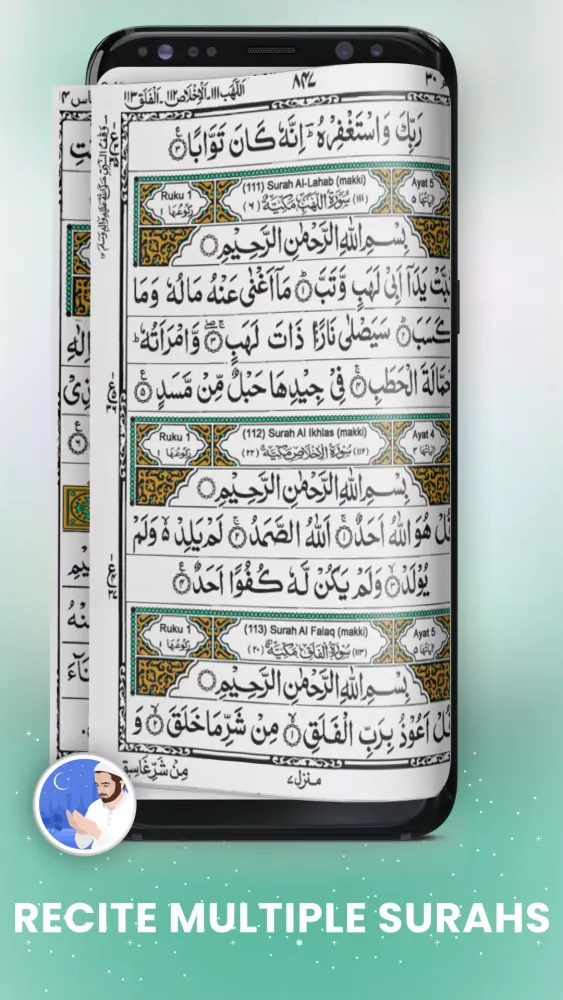 اللّهب ١١١۔ الاخلاص ١١٢۔ الفلق ١١٣
٨٤٧
٣٠
رَبِّكَ وَاسْتَغْفِرْهُ ؕ اِنَّهٗ كَانَ تَوَّابًا ۝٣
Ruku 1
(111) Surah Al-Lahab (makki)
Ayat 5
رُكُوْعُهَا ١
(١١١) سُوْرَةُ اللَّهَبِ مَكِّيَّةٌ (٦)
اٰيَاتُهَا ٥
بِسْمِ اللّٰهِ الرَّحْمٰنِ الرَّحِيْمِ
تَبَّتْ يَدَاۤ اَبِيْ لَهَبٍ وَّتَبَّ ۝١ مَاۤ اَغْنٰى عَنْهُ مَالُهٗ وَمَا
كَسَبَ ۝٢ سَيَصْلٰى نَارًا ذَاتَ لَهَبٍ ۝٣ وَّامْرَاَتُهٗ ؕ
حَمَّالَةَ الْحَطَبِ ۝٤ فِيْ جِيْدِهَا حَبْلٌ مِّنْ مَّسَدٍ ۝٥
Ruku 1
(112) Surah Al Ikhlas (makki)
Ayat 4
رُكُوْعُهَا ١
(١١٢) سُوْرَةُ الْاِخْلَاصِ مَكِّيَّةٌ (٢٢)
اٰيَاتُهَا ٤
بِسْمِ اللّٰهِ الرَّحْمٰنِ الرَّحِيْمِ
قُلْ هُوَ اللّٰهُ اَحَدٌ ۝١ اَللّٰهُ الصَّمَدُ ۝٢ لَمْ يَلِدْ ۙ وَلَمْ
يُوْلَدْ ۝٣ وَلَمْ يَكُنْ لَّهٗ كُفُوًا اَحَدٌ ۝٤
Ruku 1
(113) Surah Al Falaq (makki)
Ayat 5
رُكُوْعُهَا ١
(١١٣) سُوْرَةُ الْفَلَقِ مَكِّيَّةٌ (٢٠)
اٰيَاتُهَا ٥
بِسْمِ اللّٰهِ الرَّحْمٰنِ الرَّحِيْمِ
قُلْ اَعُوْذُ بِرَبِّ الْفَلَقِ ۝١ مِنْ شَرِّ مَا خَلَقَ ۝٢ وَ
منزل ٧
مِنْ شَرِّ غَاسِقٍ
RECITE MULTIPLE SURAHS